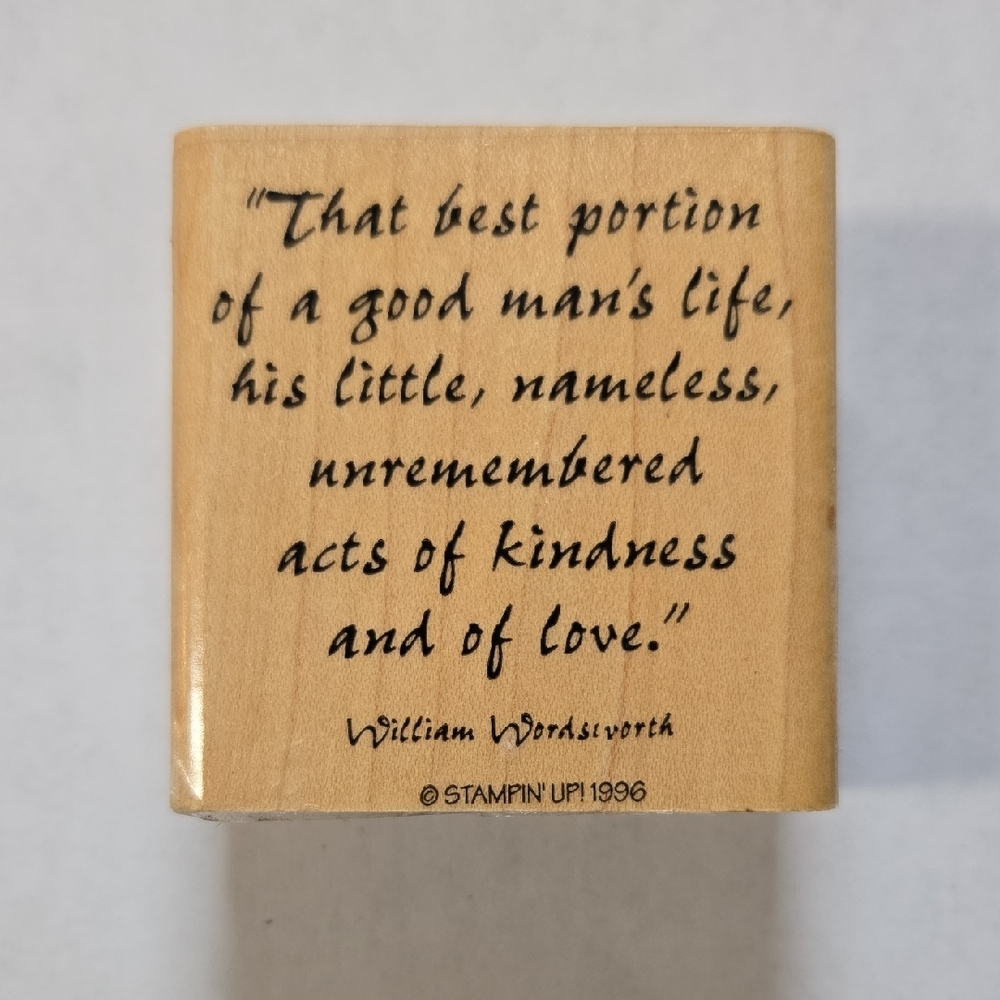 "That best portion
of a good man's life,
his little, nameless,
unremembered
acts of kindness
and of love."
William Wordsworth
© STAMPIN' UP! 1996